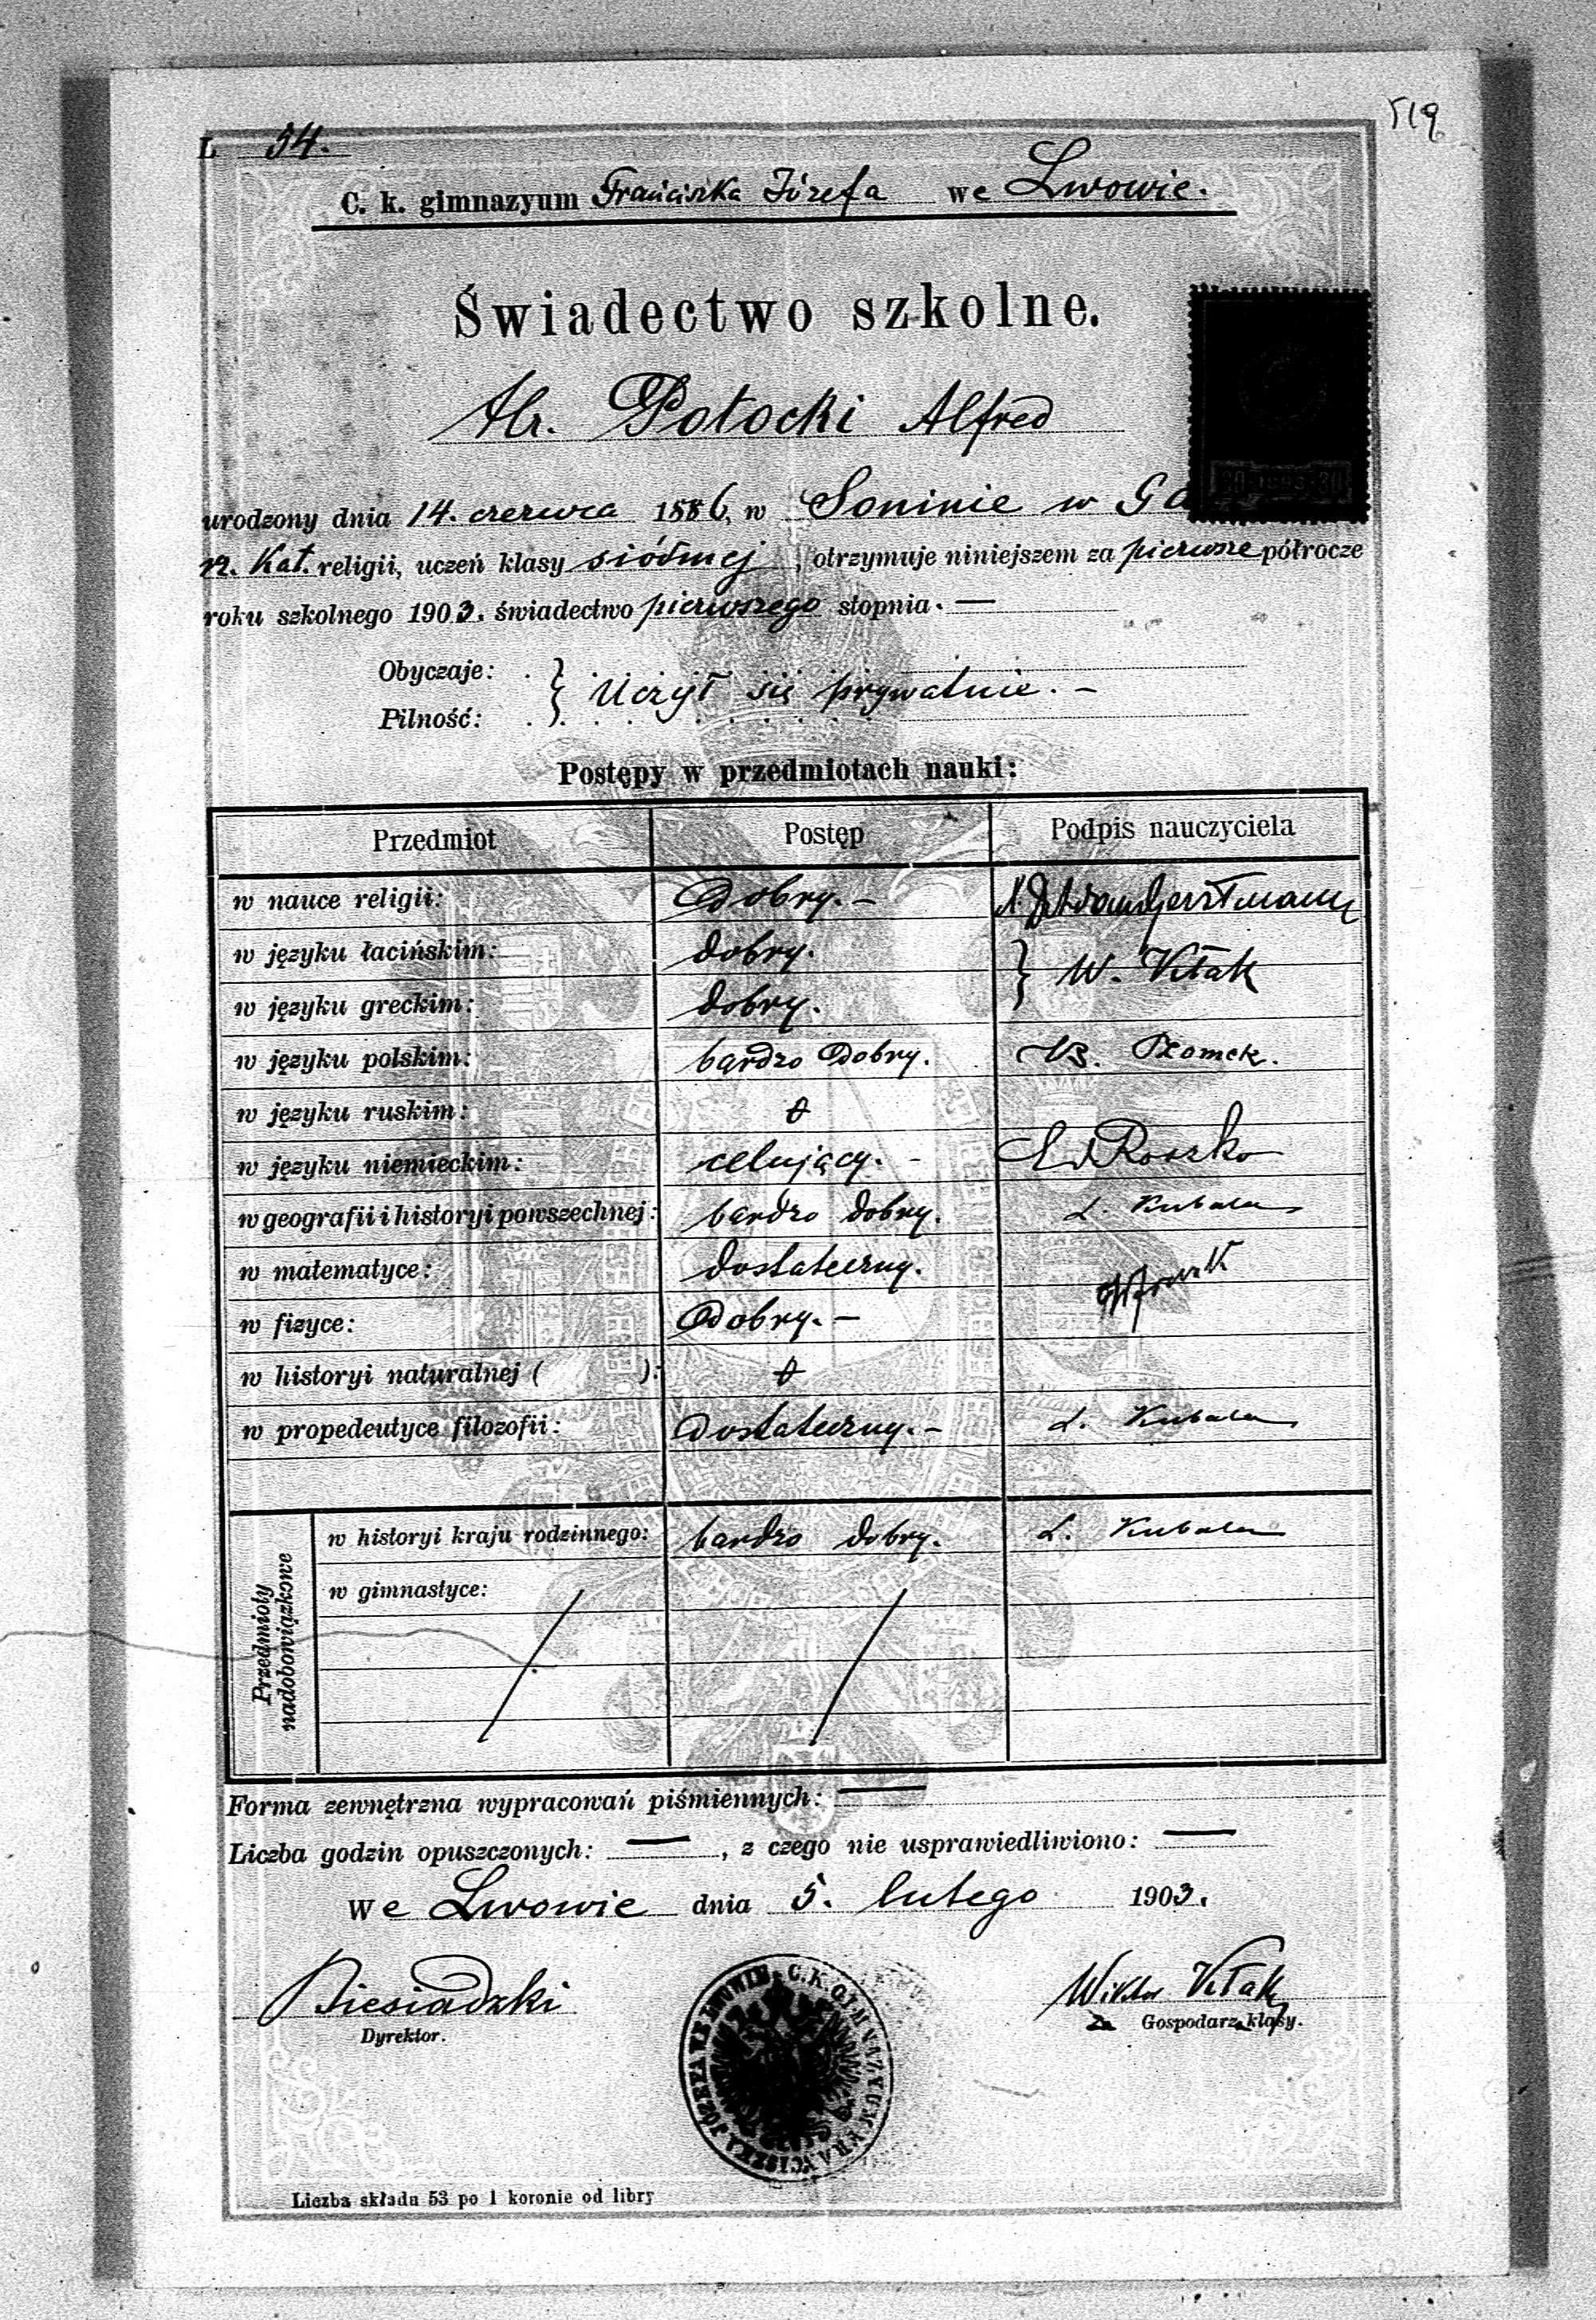 519
L 54.
C. k. gimnazyum Franciszka Józefa we Lwowie.
Świadectwo szkolne.
Hr. Potocki Alfred
urodzony dnia 14. czerwca 1886, w Soninie w Ga
rz. Kat. religii, uczeń klasy siódmej, otrzymuje niniejszem za pierwsze półrocze
roku szkolnego 1903. świadectwo pierwszego stopnia. —
Obyczaje: }
Pilność: } Uczył się prywatnie. –
Postępy w przedmiotach nauki:
Przedmiot Postęp Podpis nauczyciela
w nauce religii: Dobry. –
w języku łacińskim: dobry. } W. Kłak
w języku greckim: dobry.
w języku polskim: bardzo dobry.
w języku ruskim: 0
w języku niemieckim: celujący. – Roszko
w geografii i historyi powszechnej: bardzo dobry. L. Kubala
w matematyce: dostateczny.
w fizyce: Dobry. –
w historyi naturalnej ( ): 0
w propedeutyce filozofii: Dostateczny. – L. Kubala
Przedmioty nadobowiązkowe
w historyi kraju rodzinnego: bardzo dobry. L. Kubala
w gimnastyce:
Forma zewnętrzna wypracowań piśmiennych: —
Liczba godzin opuszczonych: —, z czego nie usprawiedliwiono: —
We Lwowie dnia 5. lutego 1903.
Biesiadzki Wiktor Kłak
Dyrektor. za Gospodarza klasy.
C. K. GIMNAZYUM FRANCISZKA JÓZEFA WE LWOWIE
Liczba składu 53 po 1 koronie od libry